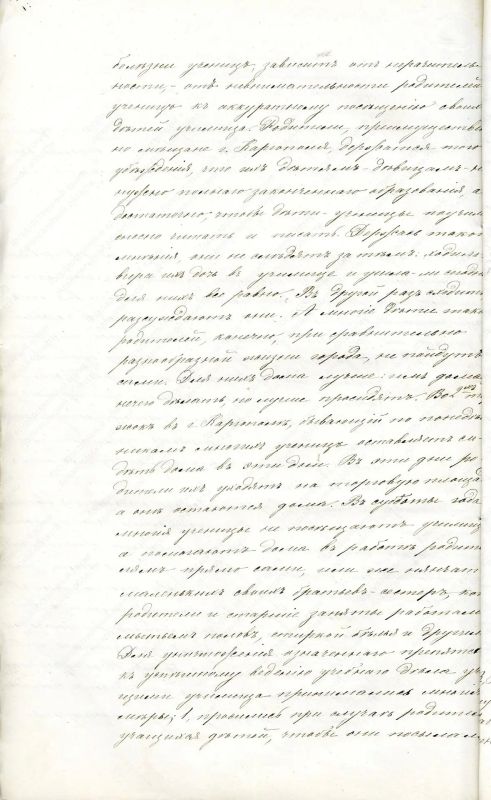 болѣзни ученицъ, зависитъ отъ нерачитель-
ности, - отъ невнимательности родителей
ученицъ къ аккуратному посѣщенію своихъ
дѣтей училища. Родители, преимуществен
но мѣщане г. Каргополя, держатся того
убѣжденія, что ихъ дѣтямъ - дѣвицамъ - не
нужно полнаго законченнаго образованія, а
достаточно, чтобы дѣти - ученицы научил
сносно читать и писать. Держась такого
мнѣнія, они не слѣдятъ за тѣмъ: ходила-
вчера ихъ дочь въ училище и учила-ли
для нихъ все равно. "Въ другой разъ сходитъ"
разсуждаютъ они. А многіе дѣти такихъ
родителей, конечно, при сравнительно
разнообразной жизни города, не пойдутъ
сами. Для нихъ дома лучше: имъ дома
нечего дѣлать, но лучше просидятъ. Во 2хъ
въ г. Каргополѣ, бывающій по понедѣль
никамъ многихъ ученицъ оставляетъ си-
дѣть дома въ эти дни. Въ эти дни ро-
дители ихъ уходятъ на торговую площадь
а онѣ остаются дома. Въ субботы
многія ученицы не посѣщаютъ училища
а помогаютъ дома въ работѣ родите
лямъ прямо сами, или же нянчатъ
маленькихъ своихъ братьевъ - сестеръ, ког
родители и старшіе заняты работами
мытьемъ половъ, стиркой бѣлья и другими
Для уничтоженія означеннаго препятств
къ успѣшному веденію учебнаго дѣла уч
щими училища принимались многія
мѣры: 1, просились при случаѣ родители
учащихся дѣтей, чтобы они посылали